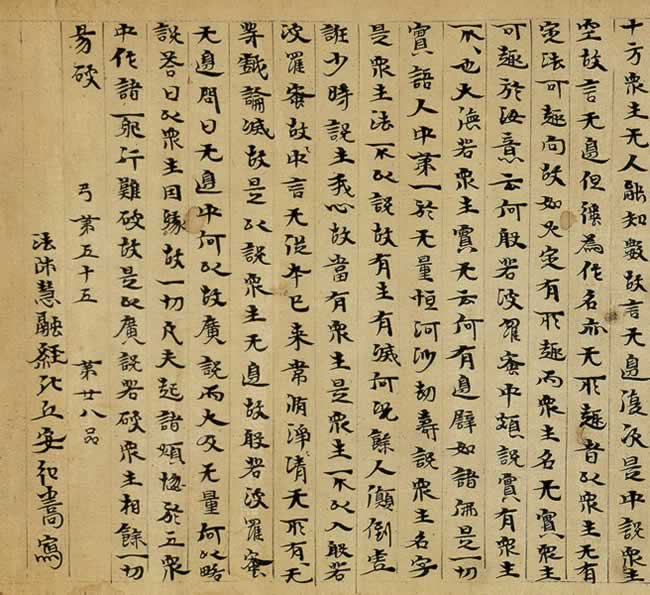 十方衆生无人能知數故言无邊復次是中說衆生
空故言无邊但彊為作名亦无所趣者以衆生无有
定法可趣向故如火定有所趣而衆生名无實衆生
可趣於汝意云何般若波羅蜜中頗說實有衆生
不不也大海若衆生實无云何有邊譬如諸佛是一切
實語人中第一於无量恒河沙劫壽說衆生名字
是衆生法不以說故有生有滅何況餘人顛倒虛
誑少時說生我心故當有衆生是衆生不以入般若
波羅蜜故中言无從本已来常清淨清无所有无
等戲論滅故是以說衆生无邊故般若波羅蜜
无邊問曰无邊中何以故廣說而大及无量何以略
說荅曰以衆生因緣故一切凡夫起諸煩惱於五衆
中作諸耶行難破故是以廣說若破衆生相餘一切
易破
弓第五十五 第廿八品
法師慧融經比丘安弘嵩寫